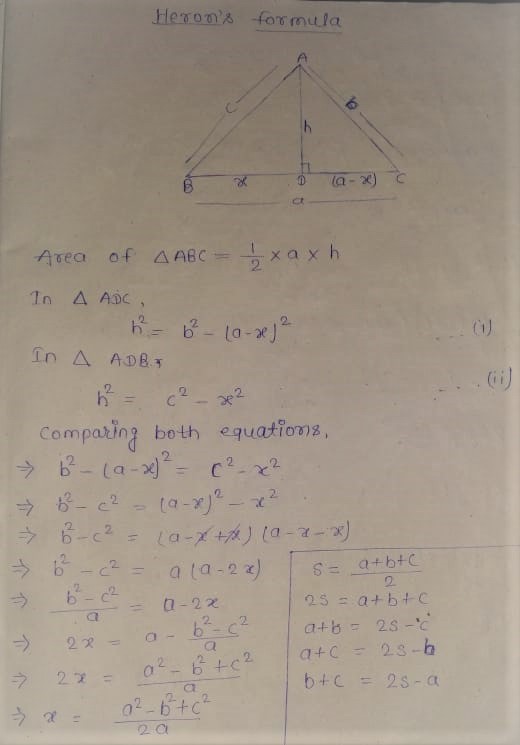 Heron's formula
A
c
b
h
B x D (a-x) C
a
Area of △ABC = 1/2 × a × h
In △ ADC,
h² = b² - (a-x)² ....(i)
In △ ADB,
h² = c² - x² ....(ii)
Comparing both equations,
⇒ b² - (a-x)² = c² - x²
⇒ b² - c² = (a-x)² - x²
⇒ b² - c² = (a-x+x) (a-x-x)
⇒ b² - c² = a (a-2x)
⇒ (b² - c²)/a = a-2x
⇒ 2x = a - (b² - c²)/a
⇒ 2x = (a² - b² + c²)/a
⇒ x = (a² - b² + c²)/2a
S = (a+b+c)/2
2S = a+b+c
a+b = 2S-c
a+c = 2S-b
b+c = 2S-a